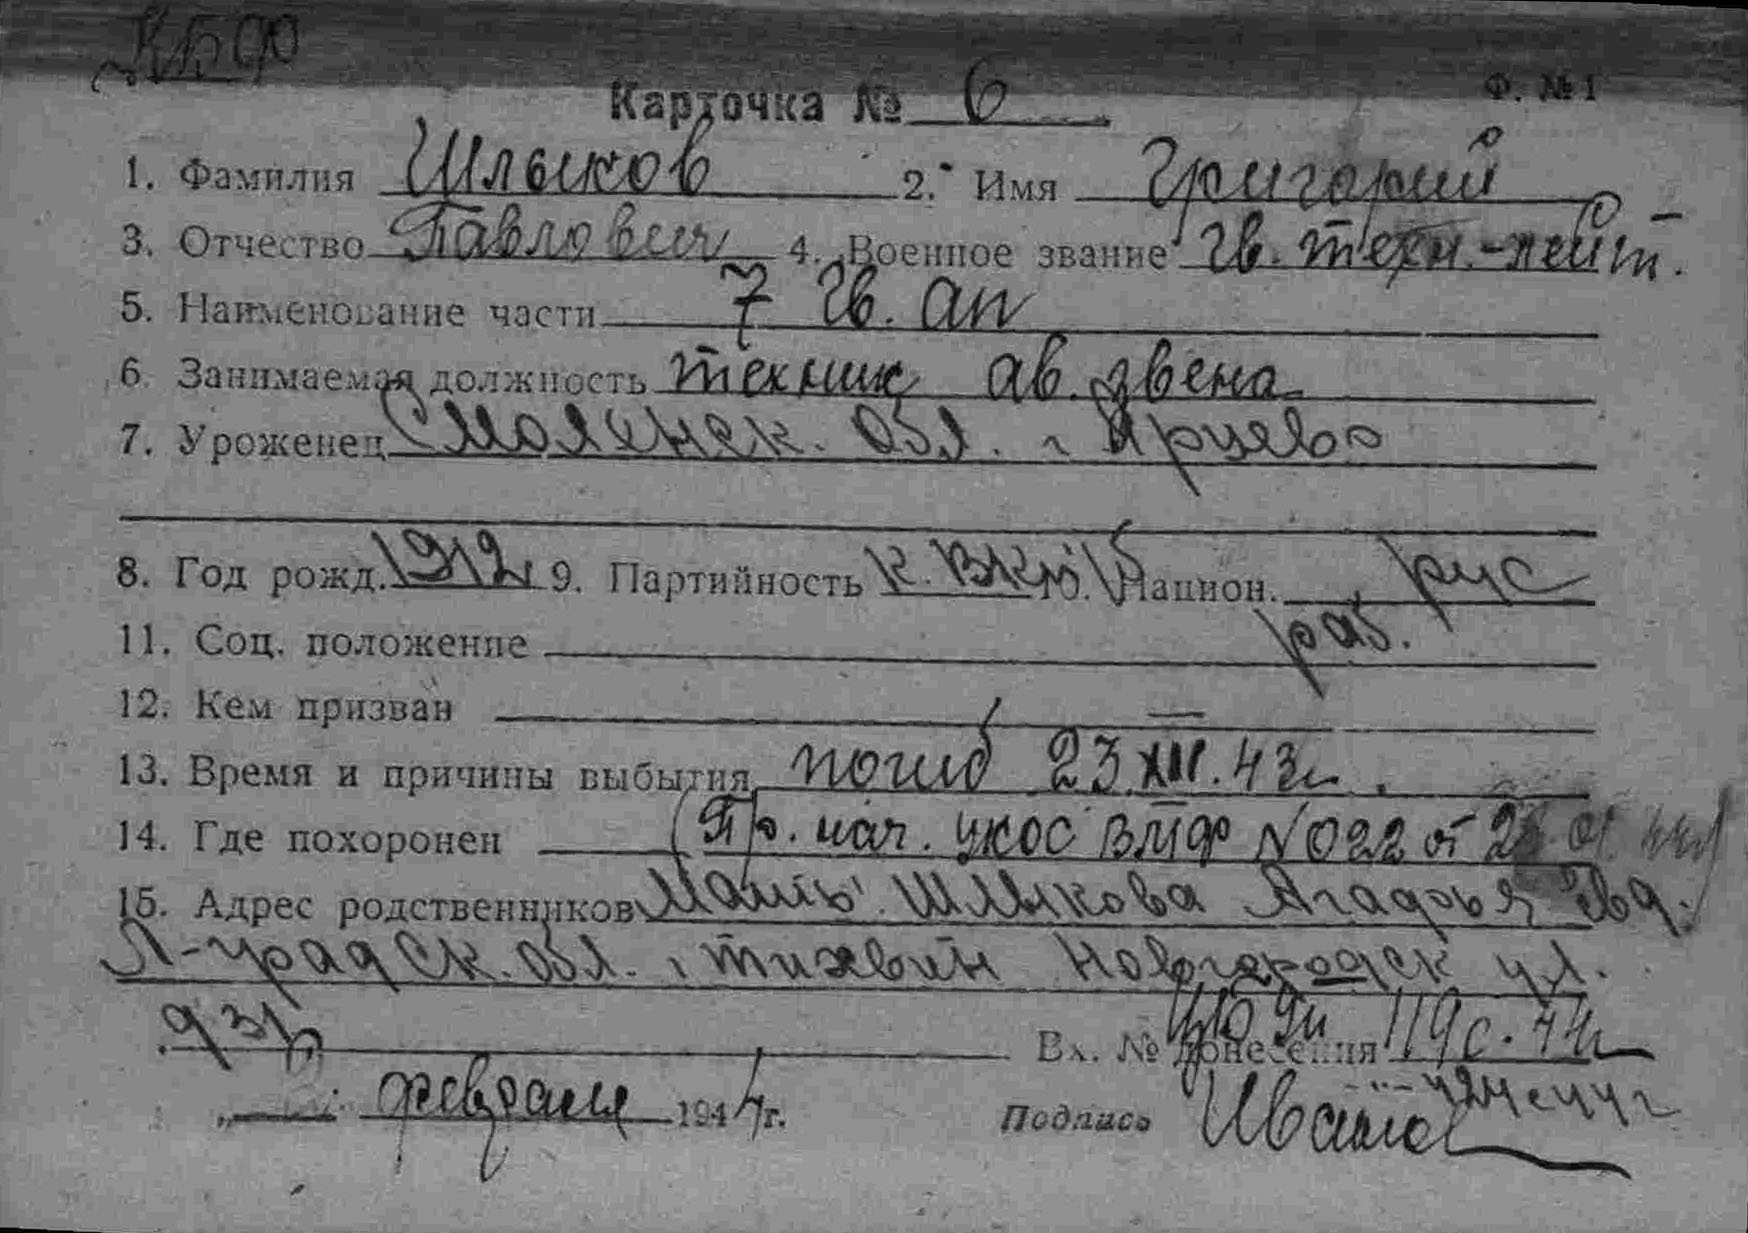 КБФ
Карточка № 6 Ф. №1
1. Фамилия Шлыков 2. Имя Григорий
3. Отчество Павлович 4. Военное звание гв. техн.-лейт.
5. Наименование части 7 гв. ап
6. Занимаемая должность техник ав. звена
7. Уроженец Смоленск. обл. г Ярцево
8. Год рожд. 1912 9. Партийность к. ВКП/б 10. Национ. рус
11. Соц. положение раб.
12. Кем призван
13. Время и причины выбытия погиб 23.XII.43г.
14. Где похоронен (Пр. нач. УКОС ВМФ N 022 от
15. Адрес родственников Мать Шлыкова Агафья Евд.
Л-градск. обл. г Тихвин Новгородск ул.
д 31
Вх. № донесения 119с. 44г
" " февраля 1944г. Подпись